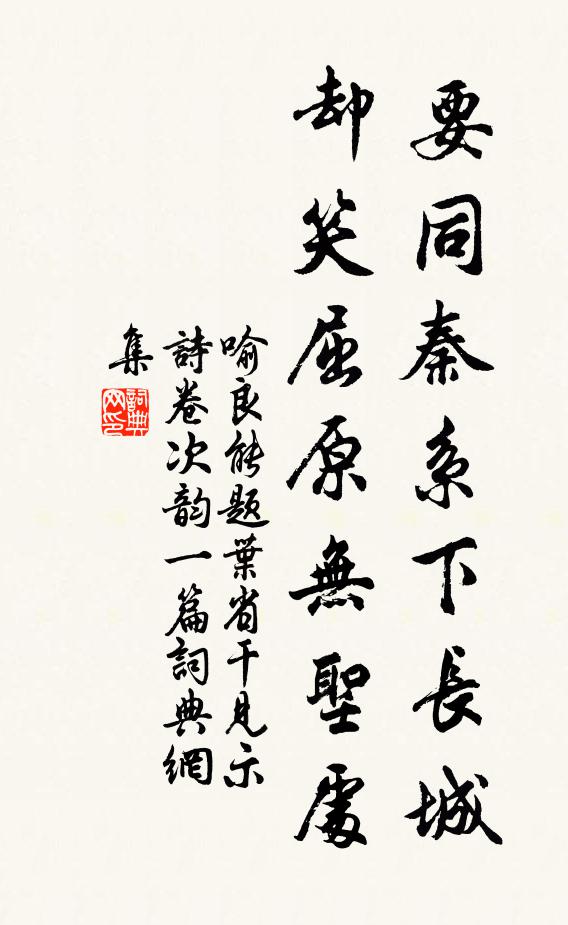 要同秦系下長城
却笑屈原無聖處
喻良能題葉省干見示
詩卷次韵一篇詞典網
集
詞典
网印